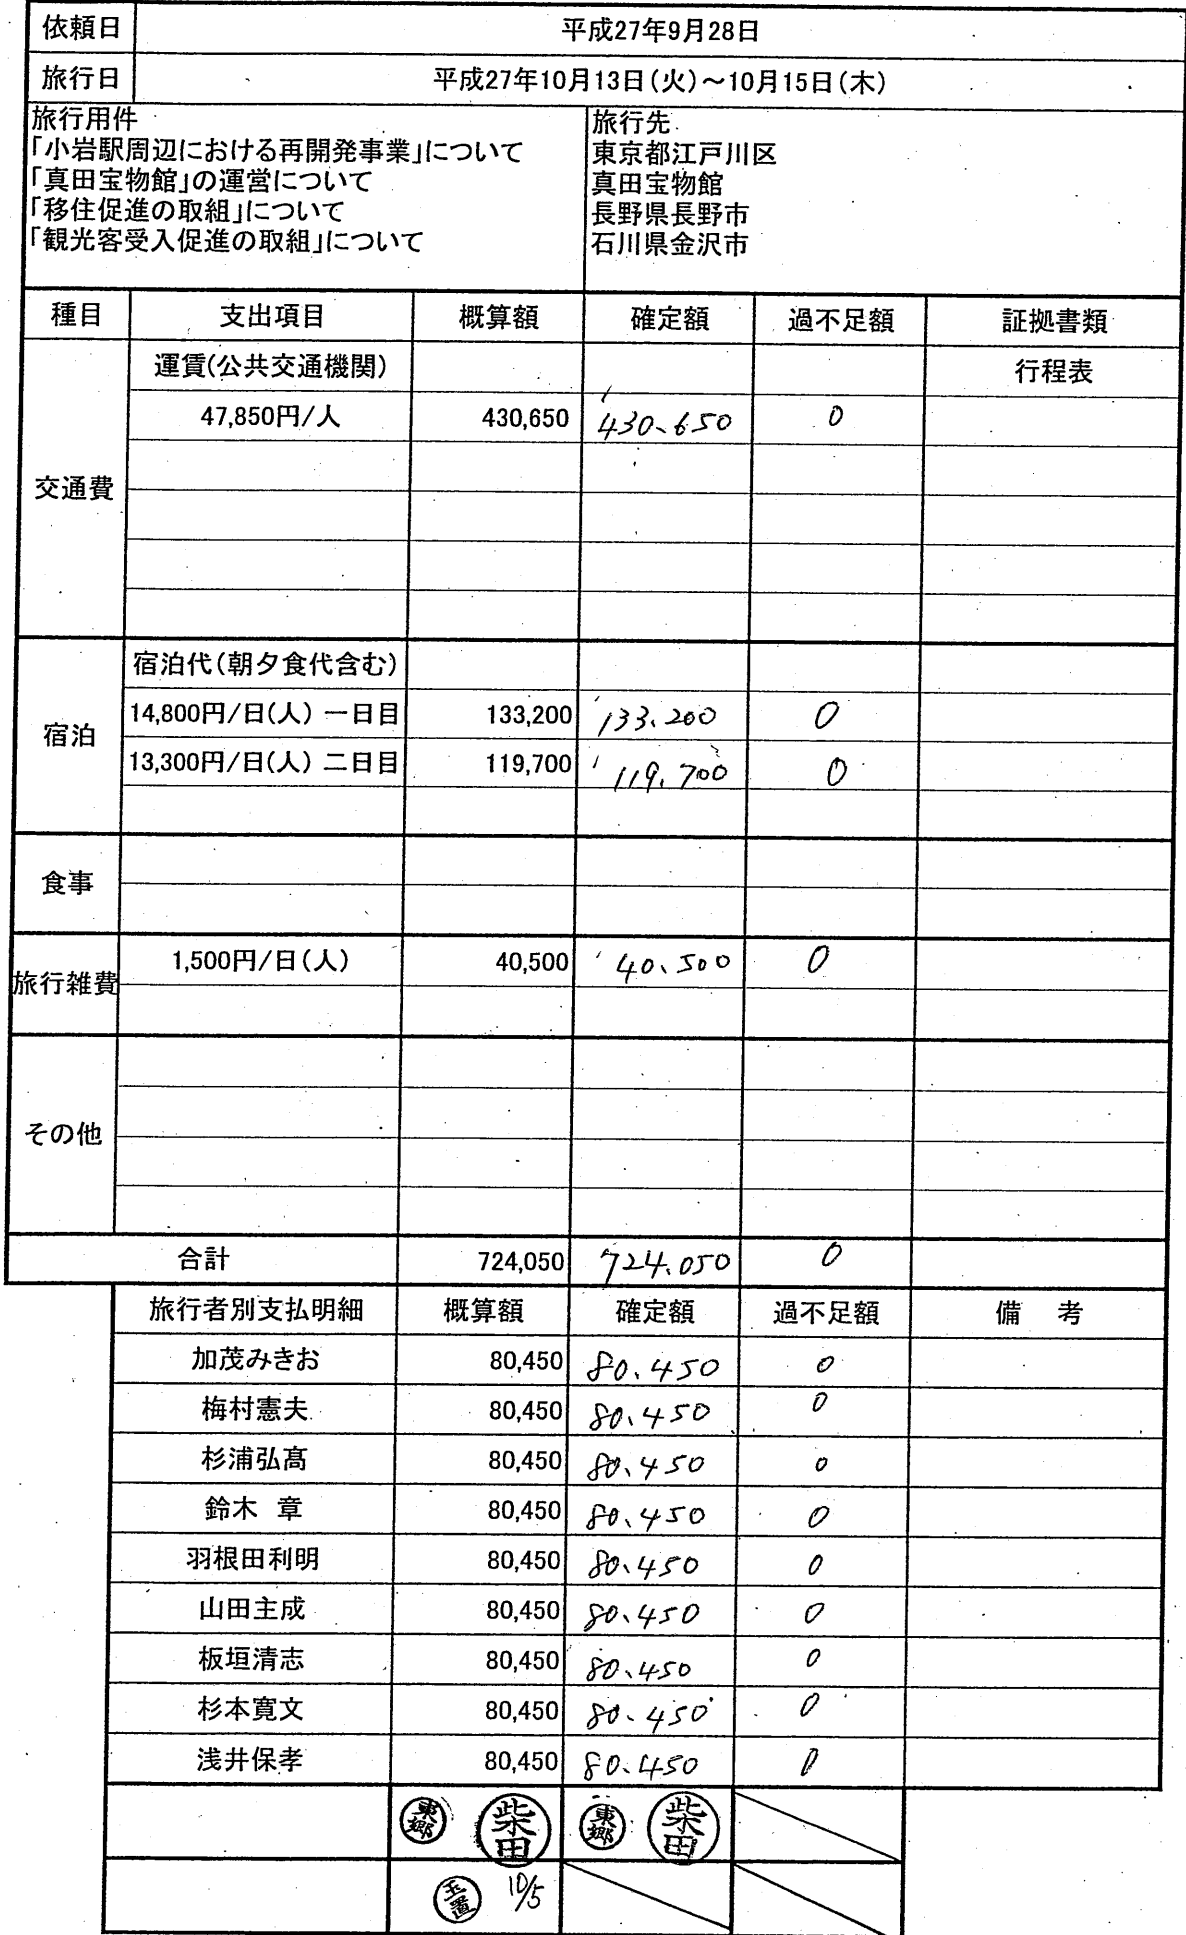 依頼日 平成27年9月28日
旅行日 平成27年10月13日(火)～10月15日(木)
旅行用件
「小岩駅周辺における再開発事業」について
「真田宝物館」の運営について
「移住促進の取組」について
「観光客受入促進の取組」について
旅行先
東京都江戸川区
真田宝物館
長野県長野市
石川県金沢市
種目 支出項目 概算額 確定額 過不足額 証拠書類
交通費
運賃(公共交通機関) 行程表
47,850円/人 430,650 430、650 0
宿泊
宿泊代(朝夕食代含む)
14,800円/日(人) 一日目 133,200 133、200 0
13,300円/日(人) 二日目 119,700 119、700 0
食事
旅行雑費
1,500円/日(人) 40,500 40、500 0
その他
合計 724,050 724、050 0
旅行者別支払明細 概算額 確定額 過不足額 備 考
加茂みきお 80,450 80、450 0
梅村憲夫 80,450 80、450 0
杉浦弘髙 80,450 80、450 0
鈴木 章 80,450 80、450 0
羽根田利明 80,450 80、450 0
山田主成 80,450 80、450 0
板垣清志 80,450 80、450 0
杉本寛文 80,450 80、450 0
浅井保孝 80,450 80、450 0
東郷 柴田 東郷 柴田
玉置 10/5